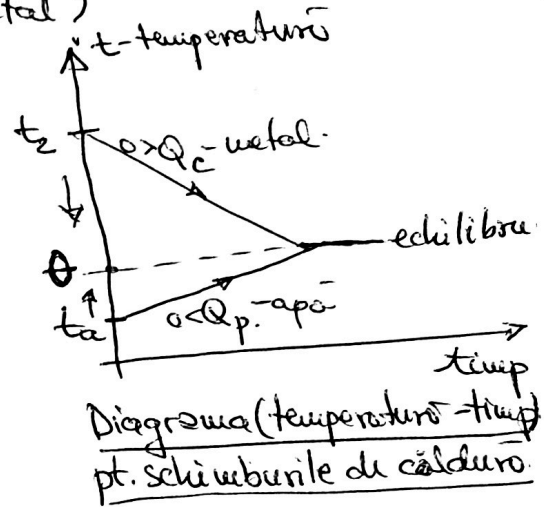 tal)
t-temperatură
t₂
0>Qc-metal.
echilibru
θ
ta
0<Qp.-apă
timp
Diagrama (temperatură-timp)
pt. schimburile de căldură.